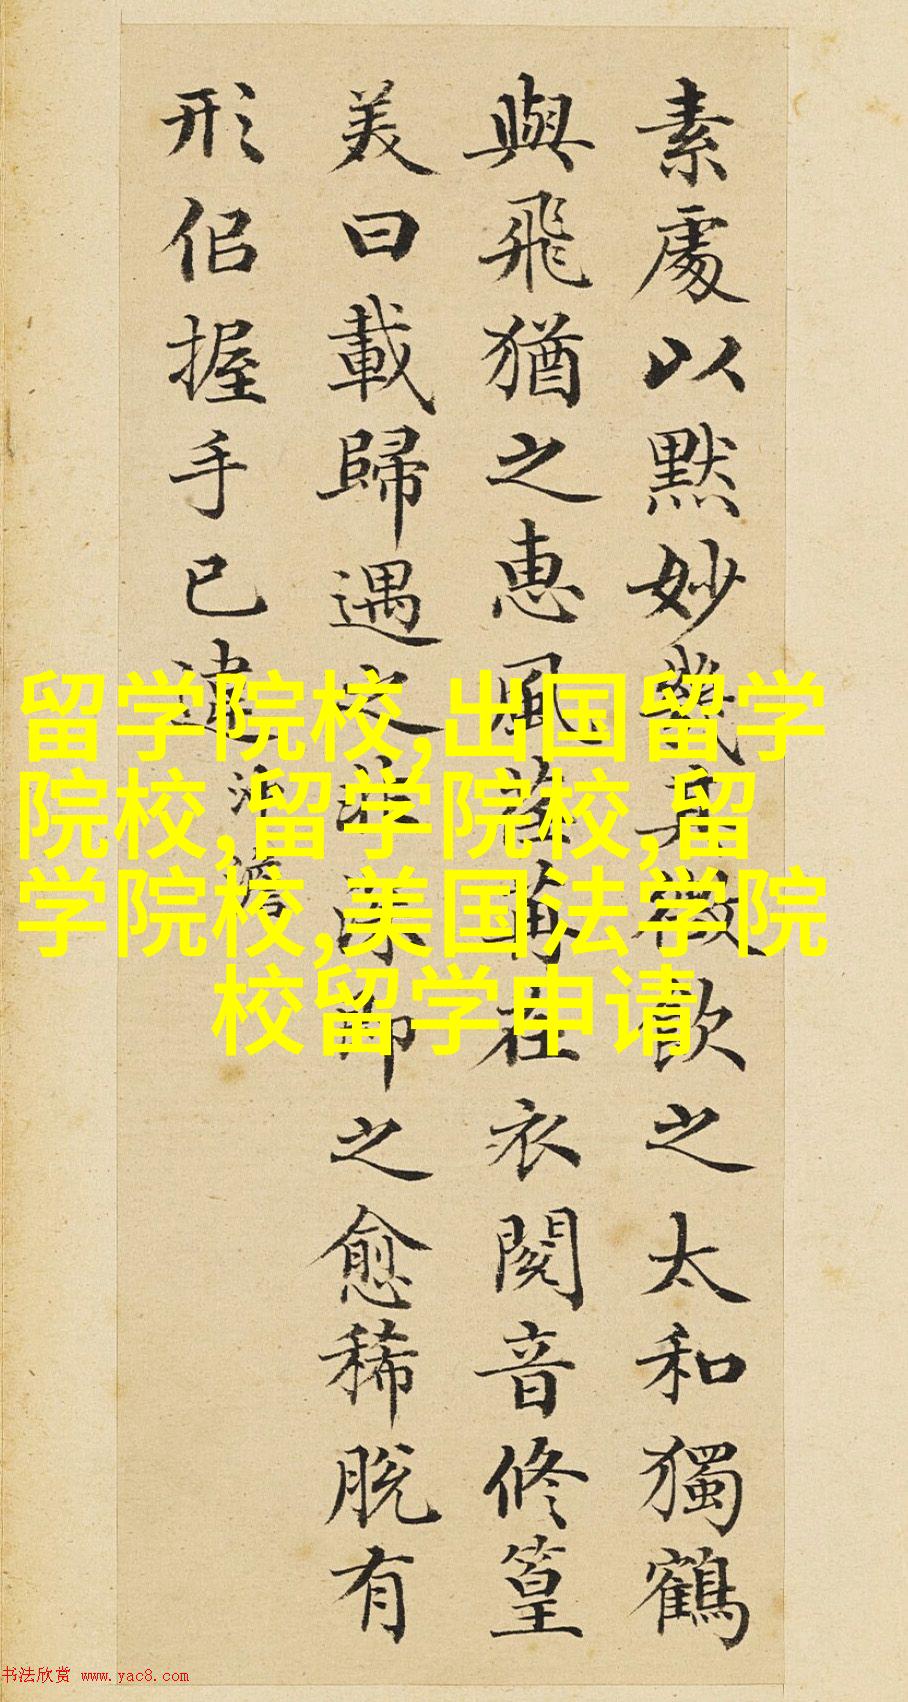 素處以默妙幾其微飲之太和獨鶴
與飛猶之惠風荏苒在衣閱音修篁
美曰載歸遇之匪深即之愈稀脫有
形佀握手已違
沖澹
留学院校,出国留学
院校,留学院校,留
学院校,美国法学院
校留学申请
书法欣赏 www.yac8.com